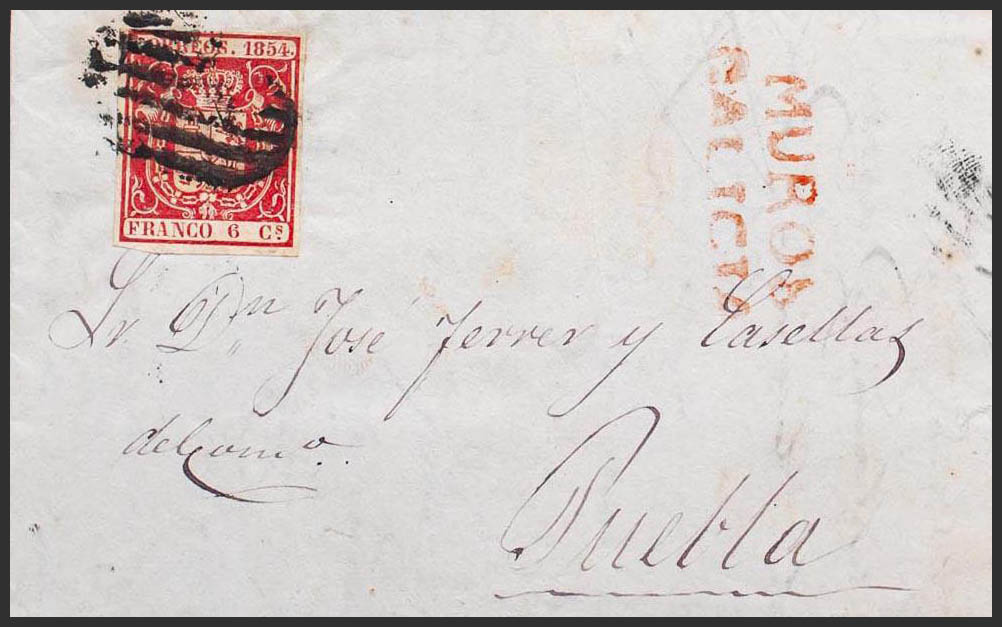 CORREOS. 1854.
FRANCO 6 Cs
MUROS
GALICIA
Sr. Dn José Ferrer y Casellas
del Como.
Puebla